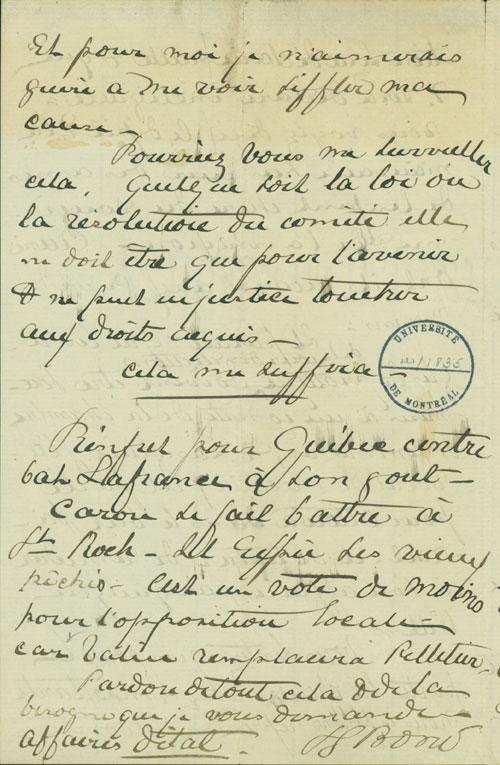 Et pour moi je n'aimerais
guère à me voir siffler ma
cause –
Pourriez vous me surveiller
cela. Quelque soit la loi ou
la résolution du comité elle
ne doit être que pour l'avenir
& ne peut injustice toucher
aux droits acquis –
cela me suffira –
UNIVERSITÉ
1835
DE MONTRÉAL
Renfret pour Québec contre
bat Lafrance à son gout –
Caron se fait battre à
St Roch – des vieux
péchés – c'est un vote de moins
pour l'opposition locale
car remplacera Pelletier.
Pardon de tout cela & de la
besogne que je vous demande
affaires d'état.